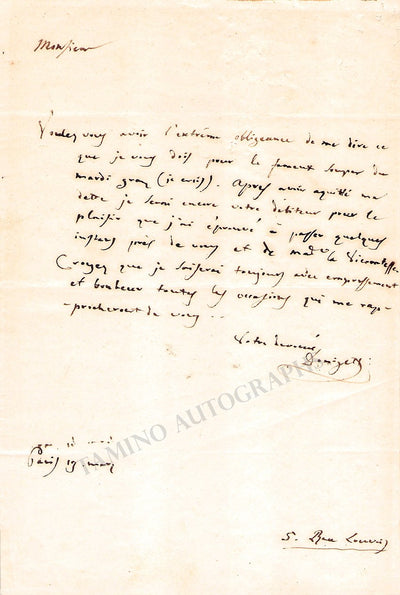 Monsieur
Voulez vous avoir l'extrême obligeance de me dire ce
que je vous dois pour le fameux souper du
mardi gras (je crois). Après avoir aquitté ma
dette je serai encore votre débiteur pour le
plaisir que j'ai éprouvé à passer quelques
instans près de vous et de mad.e la Vicomtesse
Croyez que je saisirai toujours avec empressement
et bonheur toutes les occasions qui me rap-
-procheront de vous...
Votre devoué
Donizetti
TAMINO AUTOGRAPHS
Paris 19 mars
5. Rue Louvois